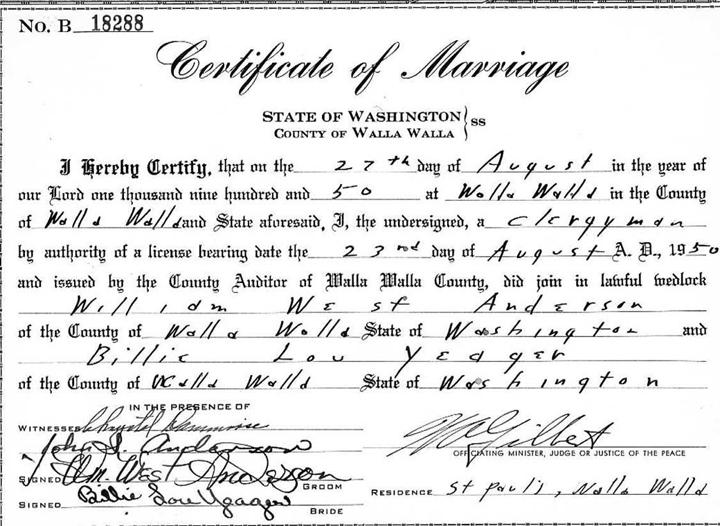 No. B 18288
Certificate of Marriage
STATE OF WASHINGTON
COUNTY OF WALLA WALLA } ss
I Hereby Certify, that on the 27th day of August in the year of
our Lord one thousand nine hundred and 50 at Walla Walla in the County
of Walla Walla and State aforesaid, I, the undersigned, a clergyman
by authority of a license bearing date the 23rd day of August A. D., 1950
and issued by the County Auditor of Walla Walla County, did join in lawful wedlock
William West Anderson
of the County of Walla Walla State of Washington and
Billie Lou Yeager
of the County of Walla Walla State of Washington
IN THE PRESENCE OF
WITNESSES
John S. Anderson
OFFICIATING MINISTER, JUDGE OR JUSTICE OF THE PEACE
SIGNED Wm. West Anderson GROOM
RESIDENCE St Pauls, Walla Walla
SIGNED Billie Lou Yeager BRIDE